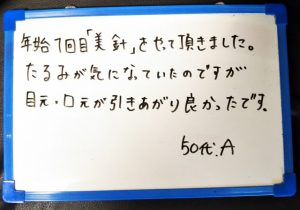 年始1回目「美針」をやって頂きました。
たるみが気になっていたのですが
目元・口元が引きあがり良かったです。
50代.A